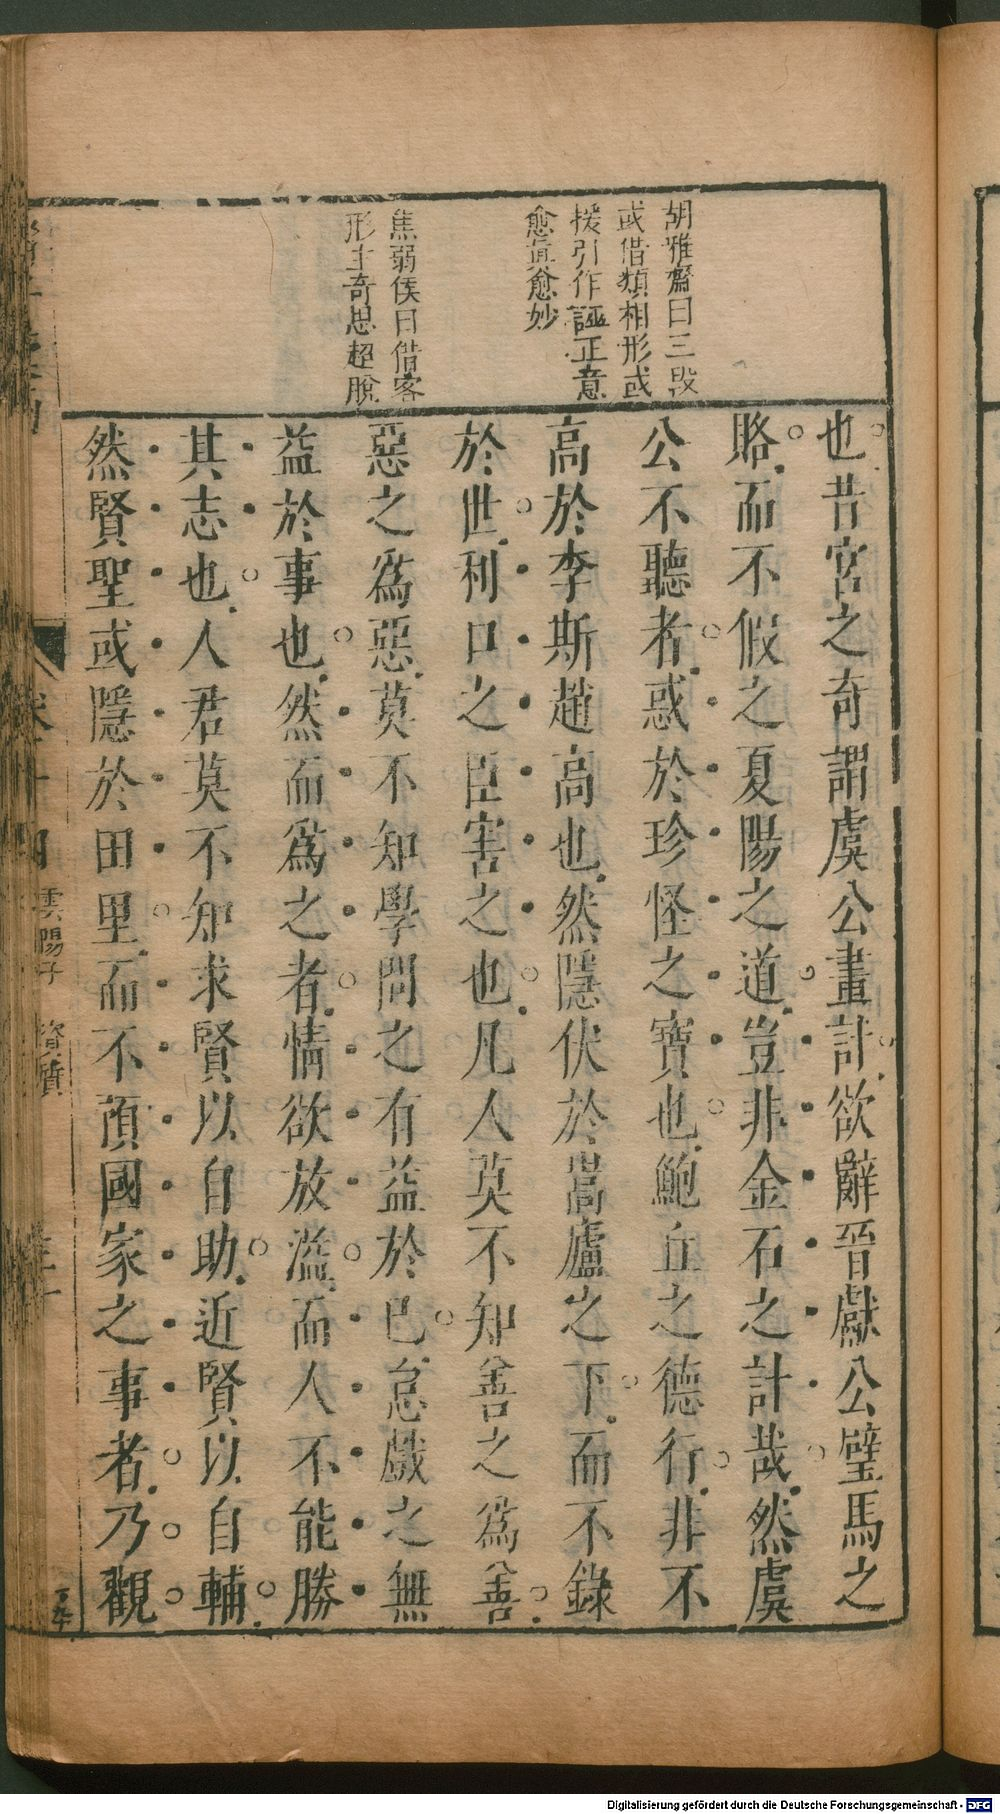 胡雅齋曰三段
或借類相形或
援引作證正意
愈眞愈妙
焦弱侯曰借客
形主奇思超脫
也昔宮之奇謂虞公畫計欲辭晉獻公璧馬之
賂而不假之夏陽之道豈非金石之計哉然虞
公不聽者惑於珍怪之寶也鮑丘之德行非不
高於李斯趙高也然隱伏於嵩廬之下而不錄
於世利口之臣害之也凡人莫不知善之爲善
惡之爲惡莫不知學問之有益於已怠戲之無
益於事也然而爲之者情欲放溢而人不能勝
其志也人君莫不知求賢以自助近賢以自輔
然賢聖或隱於田里而不預國家之事者乃觀
雲陽子 資質
Digitalisierung gefördert durch die Deutsche Forschungsgemeinschaft - DFG